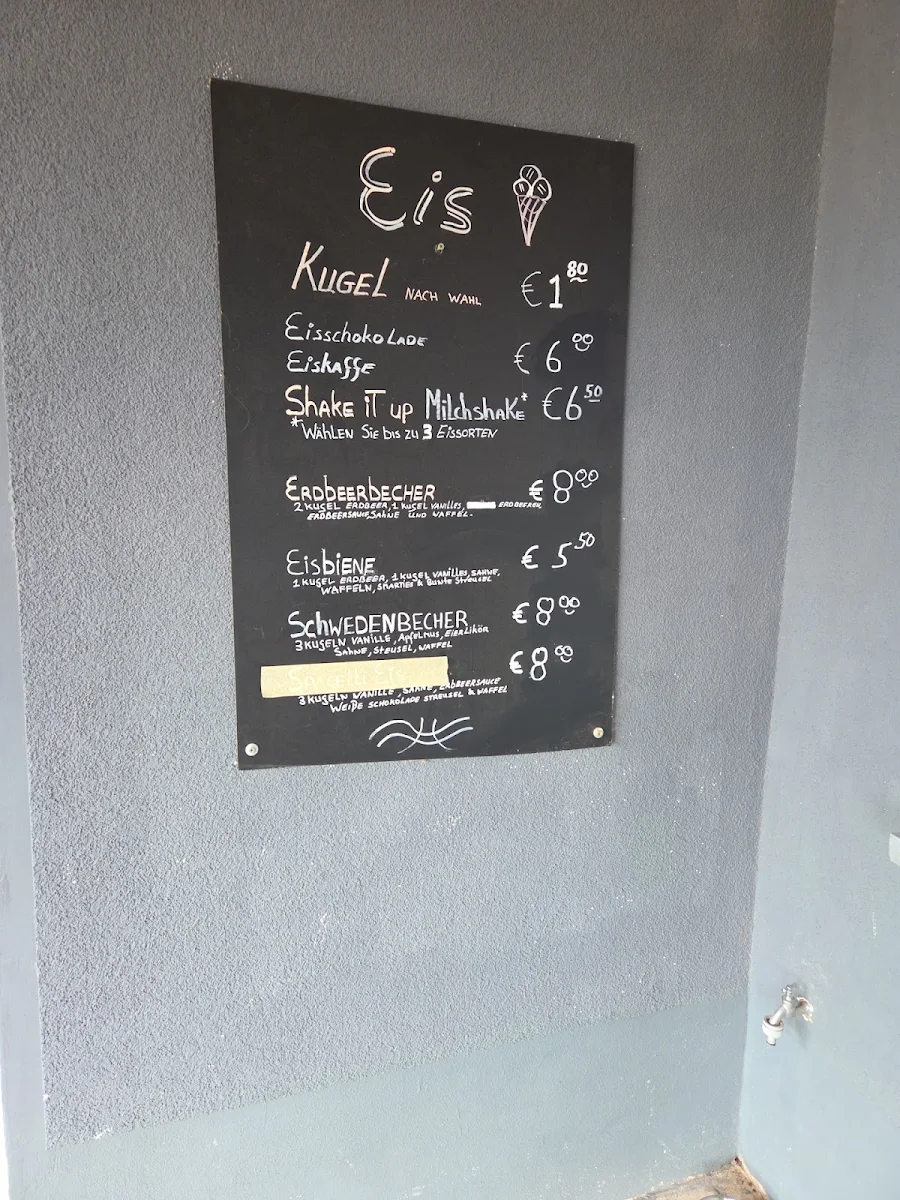 Eis
KUGEL NACH WAHL €1 80
EisschokoLADE
Eiskaffe € 6 00
SHAKE iT up MilchshaKe* €6 50
*WÄHLEN SIE BIS ZU 3 EISSORTEN
ERDBEERBECHER € 8 00
2 KUGEL ERDBEER, 1 KUGEL VANILLES, ERDBEEREN,
ERDBEERSAUCE, SAHNE UND WAFFEL.
EisBIENE € 5 50
1 KUGEL ERDBEER, 1 KUGEL VANILLES, SAHNE,
WAFFELN, SMARTIES & BUNTE STREUSEL
SchWEDENBECHER € 8 00
3 KUGELN VANILLE, Apfelmus, EIERLIKÖR
SAHNE, STEUSEL, WAFFEL
€ 8 00
3 KUGELN VANILLE, SAHNE, ERDBEERSAUCE
WEIßE SCHOKOLADE STREUSEL & WAFFEL